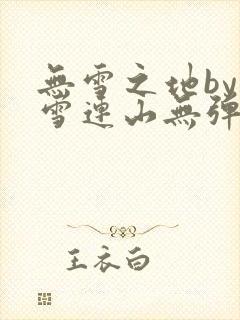 無雪之地by
雪連山無彈
王衣白